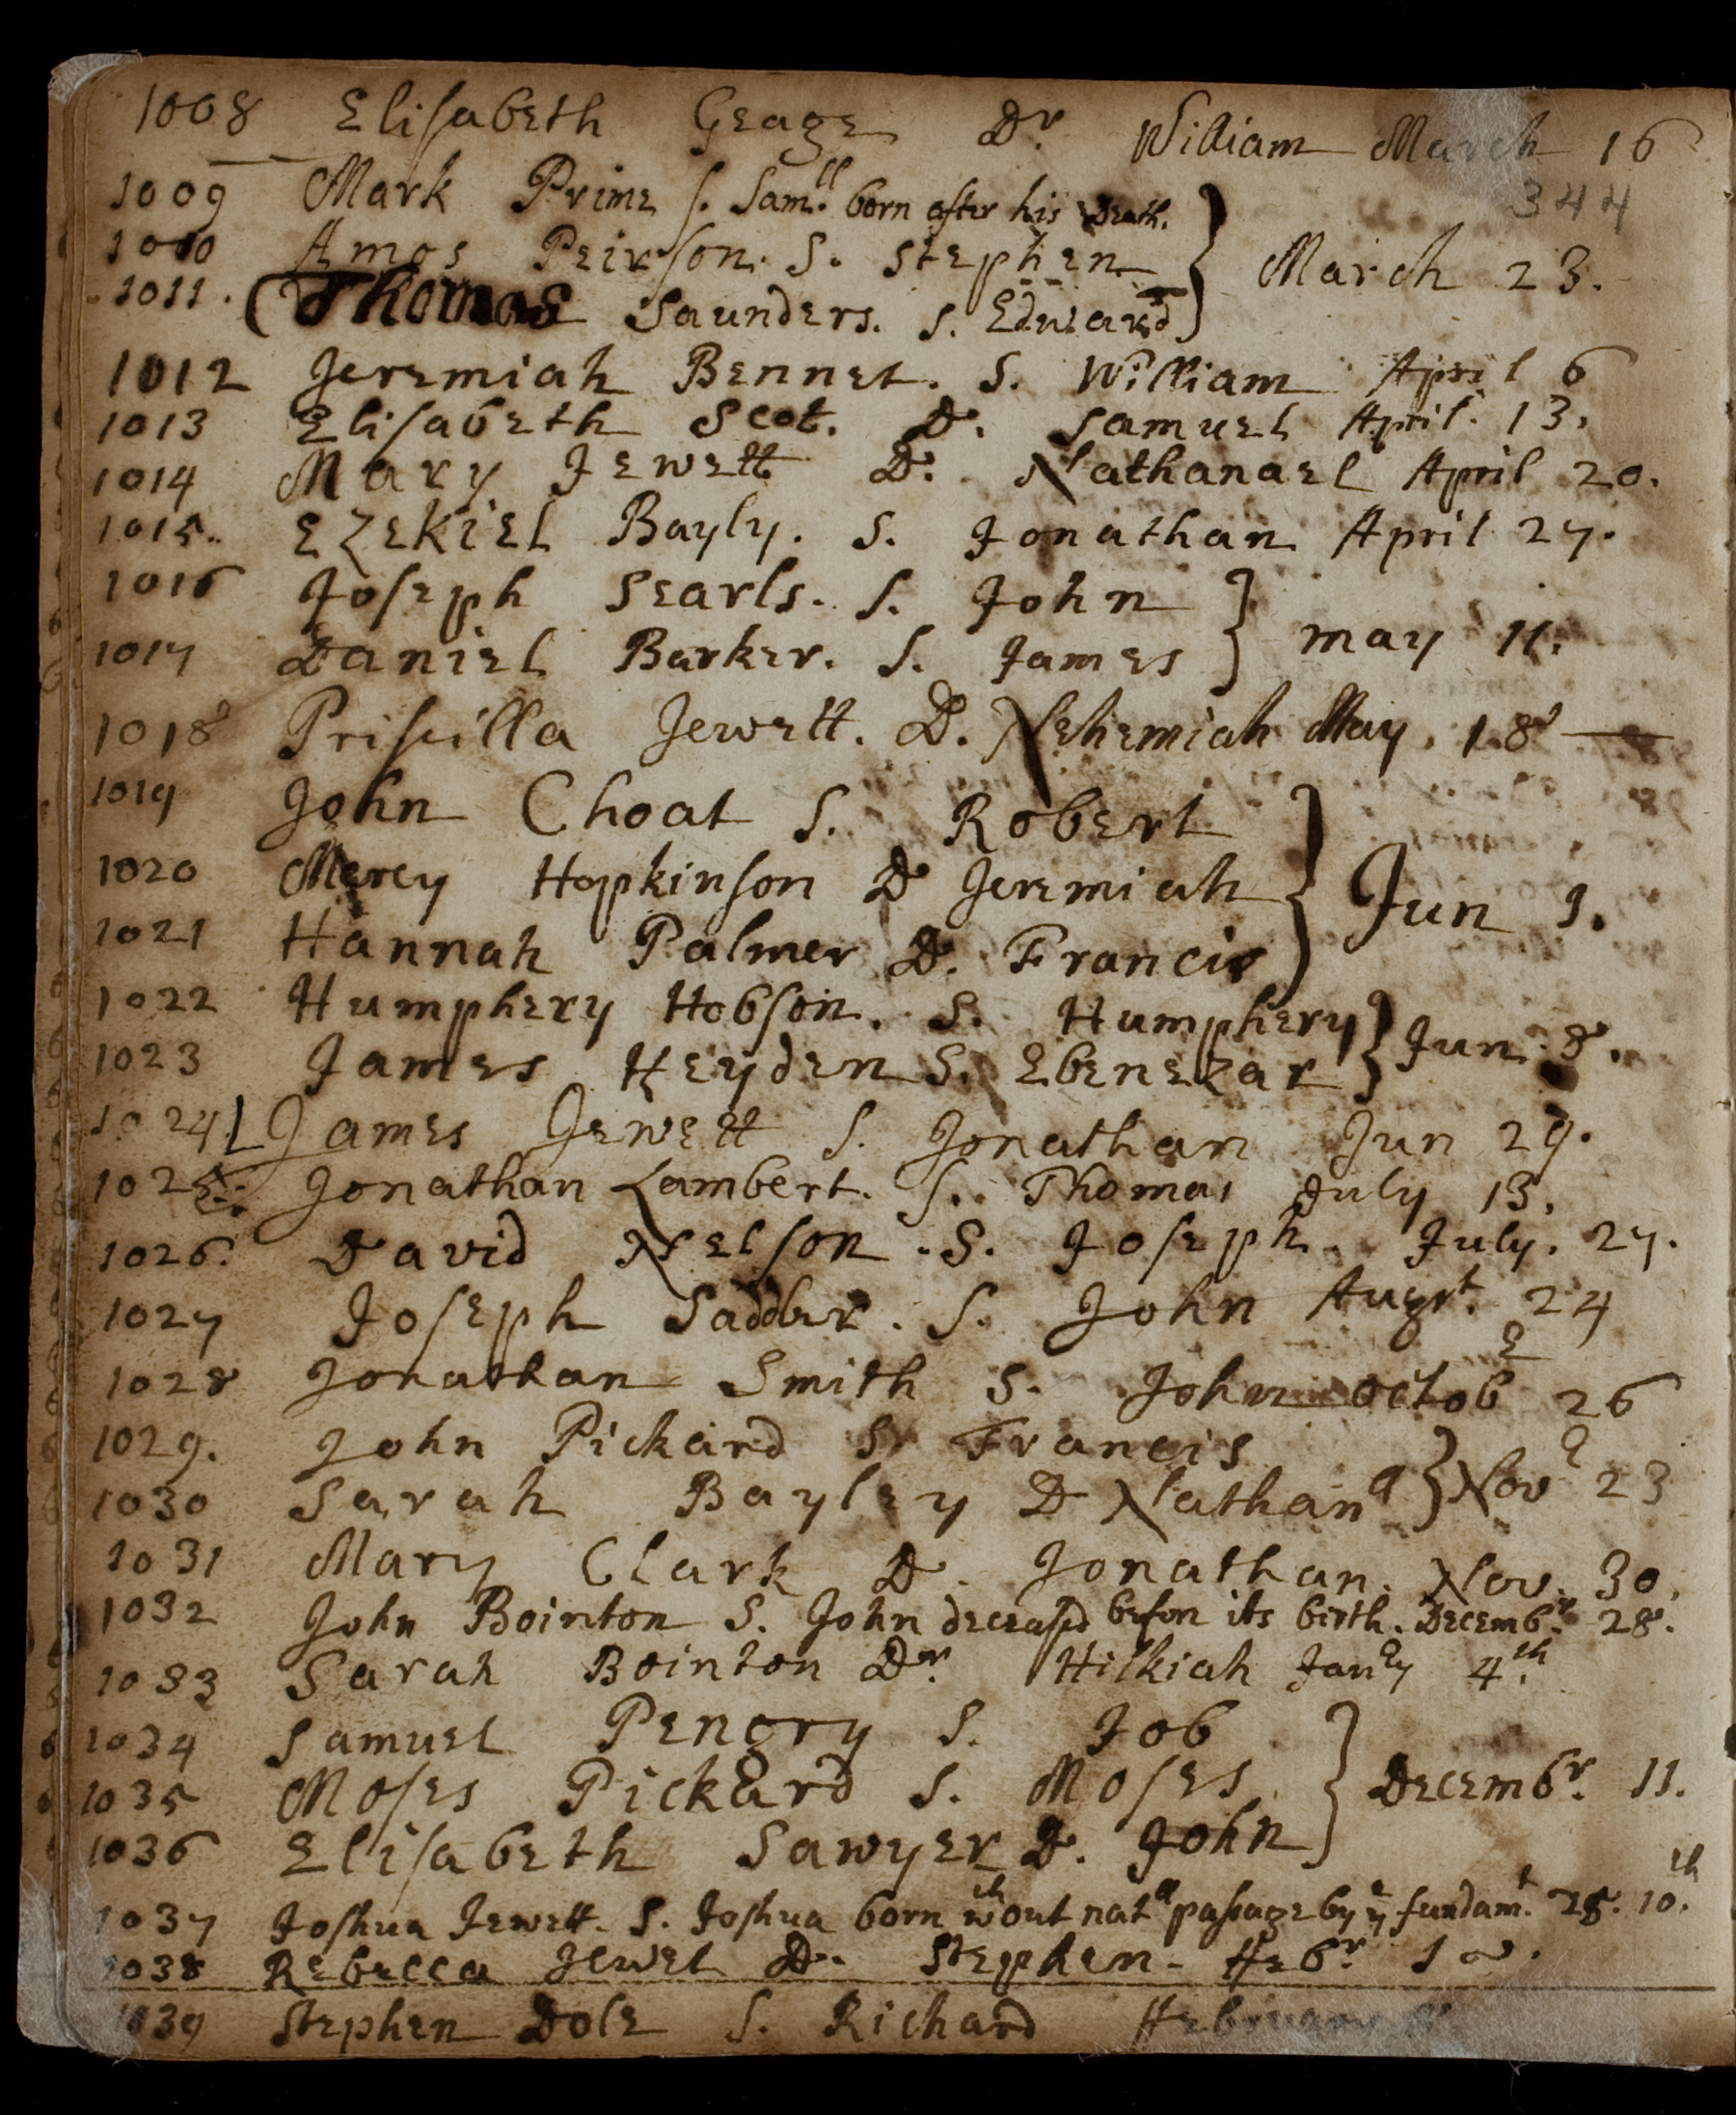 1008 Elisabeth Geage Dr William March 16
344
1009 Mark Prime s. Samll born after his Death.
1010 Amos Peirson. S. Stephen } March 23.
1011. (Thomas Saunders. s. Edward
1012 Jeremiah Bennet. S. William April 6
1013 Elisabeth Scot. D. Samuel April. 13.
1014 Mary Jewett D. Nathanael April 20.
1015.. Ezekiel Bayly. S. Jonathan April 27.
1016 Joseph Searls. S. John
1017 Daniel Barker. S. James } may 11.
1018 Priscilla Jewett. D. Nehemiah May. 18
1019 John Choat S. Robert
1020 Mercy Hopkinson D Jeremiah } Jun 1.
1021 Hannah Palmer D. Francis
1022 Humphery Hobson. S. Humphery } Jun. 8.
1023 James Heyden S. Ebenezar
1024 James Jewett S. Jonathan Jun 29.
1025 Jonathan Lambert. S. Thomas July 13.
1026. David Nelson. S. Joseph. July. 27.
1027 Joseph Sadder. S. John Augst. 24
1028 Jonathan Smith S. John octobe 26
1029. John Pickard S. Francis
1030 Sarah Bayley D Nathanll } Nov 23
1031 Mary Clark D. Jonathan. Nov. 30.
1032 John Bointon S. John deceasd before its birth. Decembr. 28.
1033 Sarah Bointon Dr. Hilkiah Janry 4th.
1034 Samuel Pengry S. Job
1035 Moses Pickard S. Moses } Decembr. 11.
1036 Elisabeth Sawyer D. John
1037 Joshua Jewett. S. Joshua born wthout natll passage by ye fundamt. 28. 10th.
1038 Rebecca Jewet D. Stephen. Febr.
1039 Stephen Dole S. Richard February